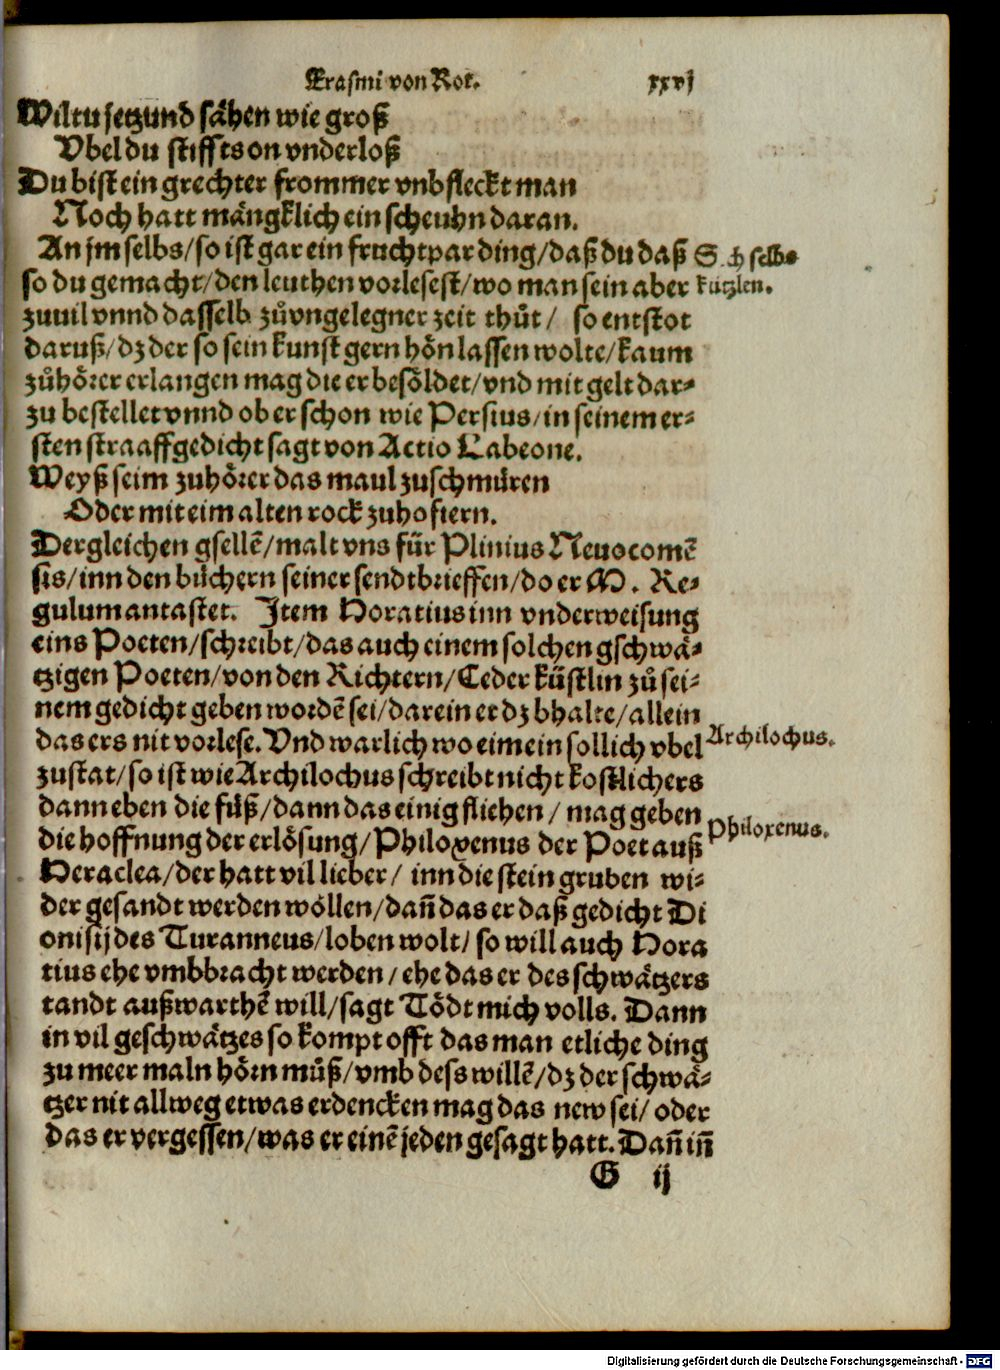 Erasmi von Rot. xxvj
Wiltu jetzund sähen wie groß
Vbel du stiffts on vnderloß
Du bist ein grechter frommer vnbfleckt man
Noch hatt mängklich ein scheuhn daran.
An jm selbs/so ist gar ein fruchtpar ding/daß du daß
so du gemacht/den leuthen vorlesest/wo man sein aber
zuuil vnnd dasselb zůvngelegner zeit thůt/ so entstot
daruß/dz der so sein kunst gern hörn lassen wolte/kaum
zůhörer erlangen mag die er besöldet/vnd mit gelt dar-
zu bestellet vnnd ob er schon wie Persius/in seinem er-
sten straaffgedicht sagt von Actio Labeone.
Weyß seim zuhörer das maul zuschmüren
Oder mit eim alten rock zuhofiern.
Dergleichen gsellē/malt vns für Plinius Neuocomē
sis/inn den büchern seiner sendtbrieffen/do er M. Re-
gulum antastet. Item Horatius inn vnderweisung
eins Poeten/schreibt/das auch einem solchen gschwä-
tzigen Poeten/von den Richtern/Ceder küstlin zů sei-
nem gedicht geben wordē sei/darein er dz bhalte/allein
das ers nit vorlese. Vnd warlich wo eim ein sollich vbel
zustat/so ist wie Archilochus schreibt nicht kostlichers
dann eben die füß/dann das einig fliehen/ mag geben
die hoffnung der erlösung/Philoxenus der Poet auß
Heraclea/der hatt vil lieber/ inn die stein gruben wi-
der gesandt werden wöllen/dañ das er daß gedicht Di
onisij des Turanneus/loben wolt/ so will auch Hora
tius ehe vmbbracht werden/ehe das er des schwätzers
tandt außwarthē will/sagt Tödt mich volls. Dann
in vil geschwätzes so kompt offt das man etliche ding
zu meer maln hörn můß/vmb dess willē/dz der schwä-
tzer nit allweg etwas erdencken mag das new sei/ oder
das er vergessen/was er einē jeden gesagt hatt. Dañ iñ
G ij
selbs
kützlen.
Archilochus.
Philoxenus.
Digitalisierung gefördert durch die Deutsche Forschungsgemeinschaft - DFG